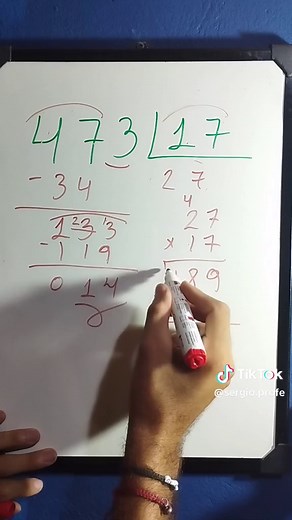 473 | 17
- 34 27
4
133 27
- 119 x 17
014 189
TikTok
@sergio.profe